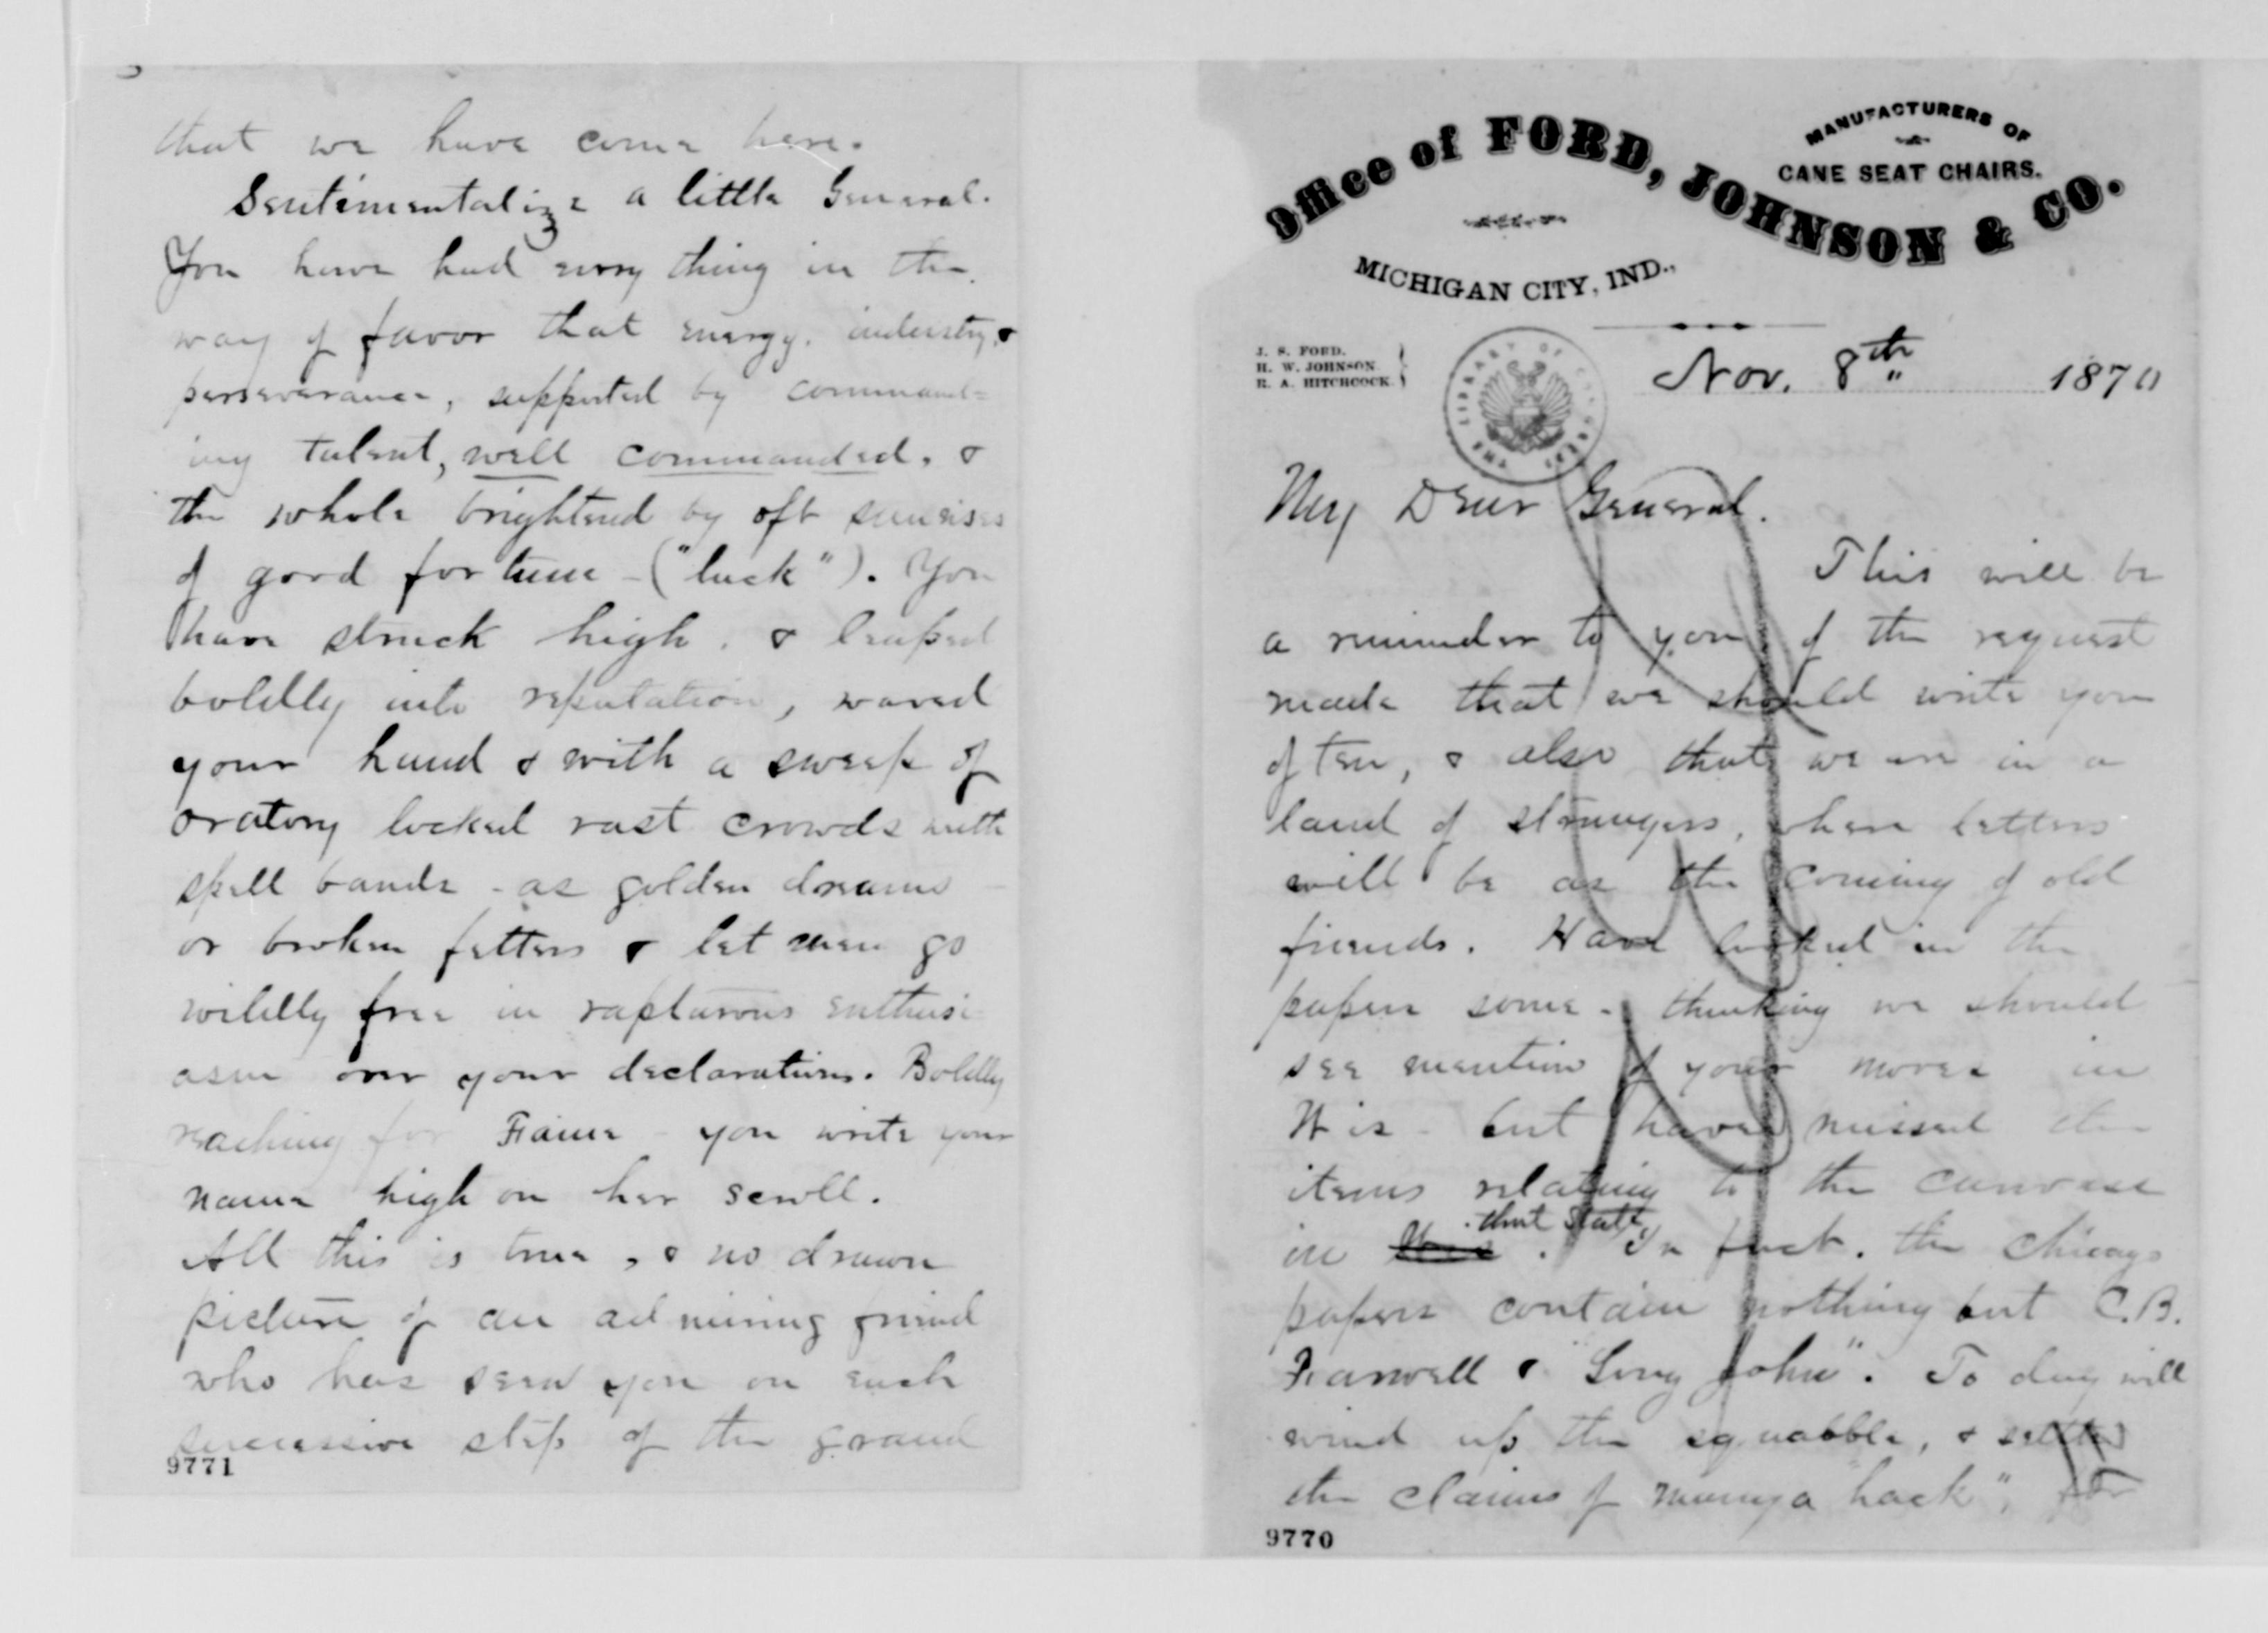 that we have come here.
Sentimentalize a little General.
You have had every thing in the
way of favor that energy, industry, &
perseverance, supported by command-
ing talent, well commanded, &
the whole brightened by oft sunrises
of good fortune - ("luck"). You
have struck high, & leaped
boldly into reputation, waved
your hand & with a sweep of
oratory locked vast crowds with
spell bands - as golden dreams -
or broken fetters & let men go
wildly free in rapturous enthusi-
asm over your declarations. Boldly
reaching for Fame - you write your
name high on her scroll.
All this is true, & no drawn
picture of an admiring friend
who has seen you on each
successive step of the grand
9771
Office of FORD, JOHNSON & CO.
MANUFACTURERS OF
CANE SEAT CHAIRS.
MICHIGAN CITY, IND.,
J. S. FORD.
H. W. JOHNSON
R. A. HITCHCOCK.
THE LIBRARY OF CONGRESS
Nov. 8th 1870
My Dear General.
This will be
a reminder to you of the request
made that we should write you
often, & also that we are in a
land of strangers, where letters
will be as the coming of old
friends. Have looked in the
papers some - thinking we should
see mention of your moves in
Wis - but have missed the
items relating to the canvass
in that State. In fact, the Chicago
papers contain nothing but C.B.
Farwell & "Long John". To day will
wind up the squabble, & settle
the claims of many a "hack",
9770